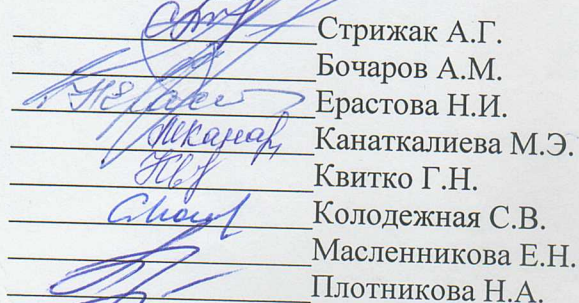 Стрижак А.Г.
Бочаров А.М.
Ерастова Н.И.
Канаткалиева М.Э.
Квитко Г.Н.
Колодежная С.В.
Масленникова Е.Н.
Плотникова Н.А.